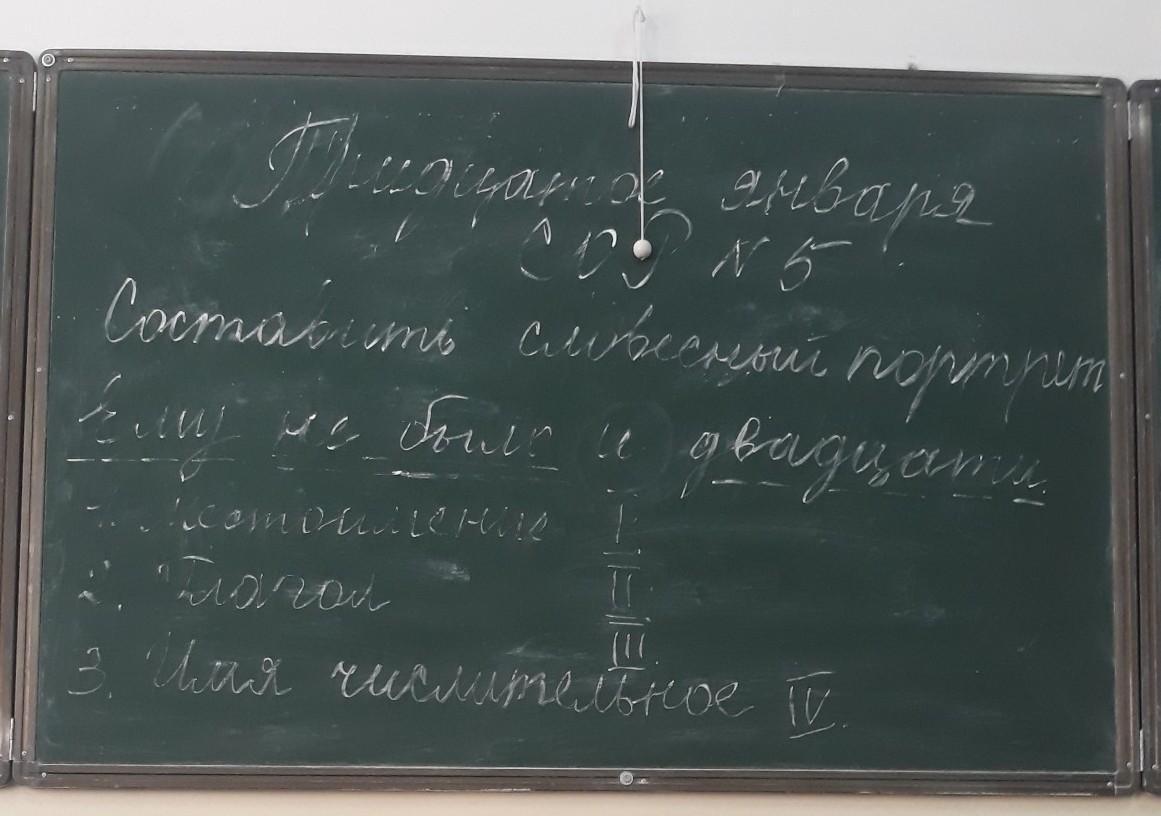 Тридцатое января
СОР № 5
Составить словесный портрет
Ему не было и двадцати.
1. Местоимение I.
2. Глагол II.
III.
3. Имя числительное IV.